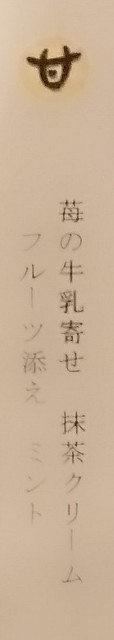 甘
苺の牛乳寄せ　抹茶クリーム
フルーツ添え　ミント